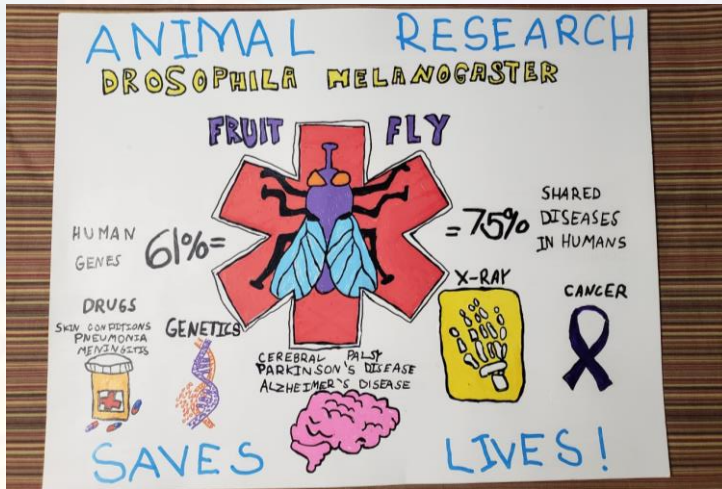 ANIMAL RESEARCH
DROSOPHILA MELANOGASTER
FRUIT FLY
HUMAN GENES 61%=
= 75% SHARED DISEASES IN HUMANS
DRUGS
SKIN CONDITIONS
PNEUMONIA
MENINGITIS
GENETICS
CEREBRAL PALSY
PARKINSON'S DISEASE
ALZHEIMER'S DISEASE
X-RAY
CANCER
SAVES LIVES!